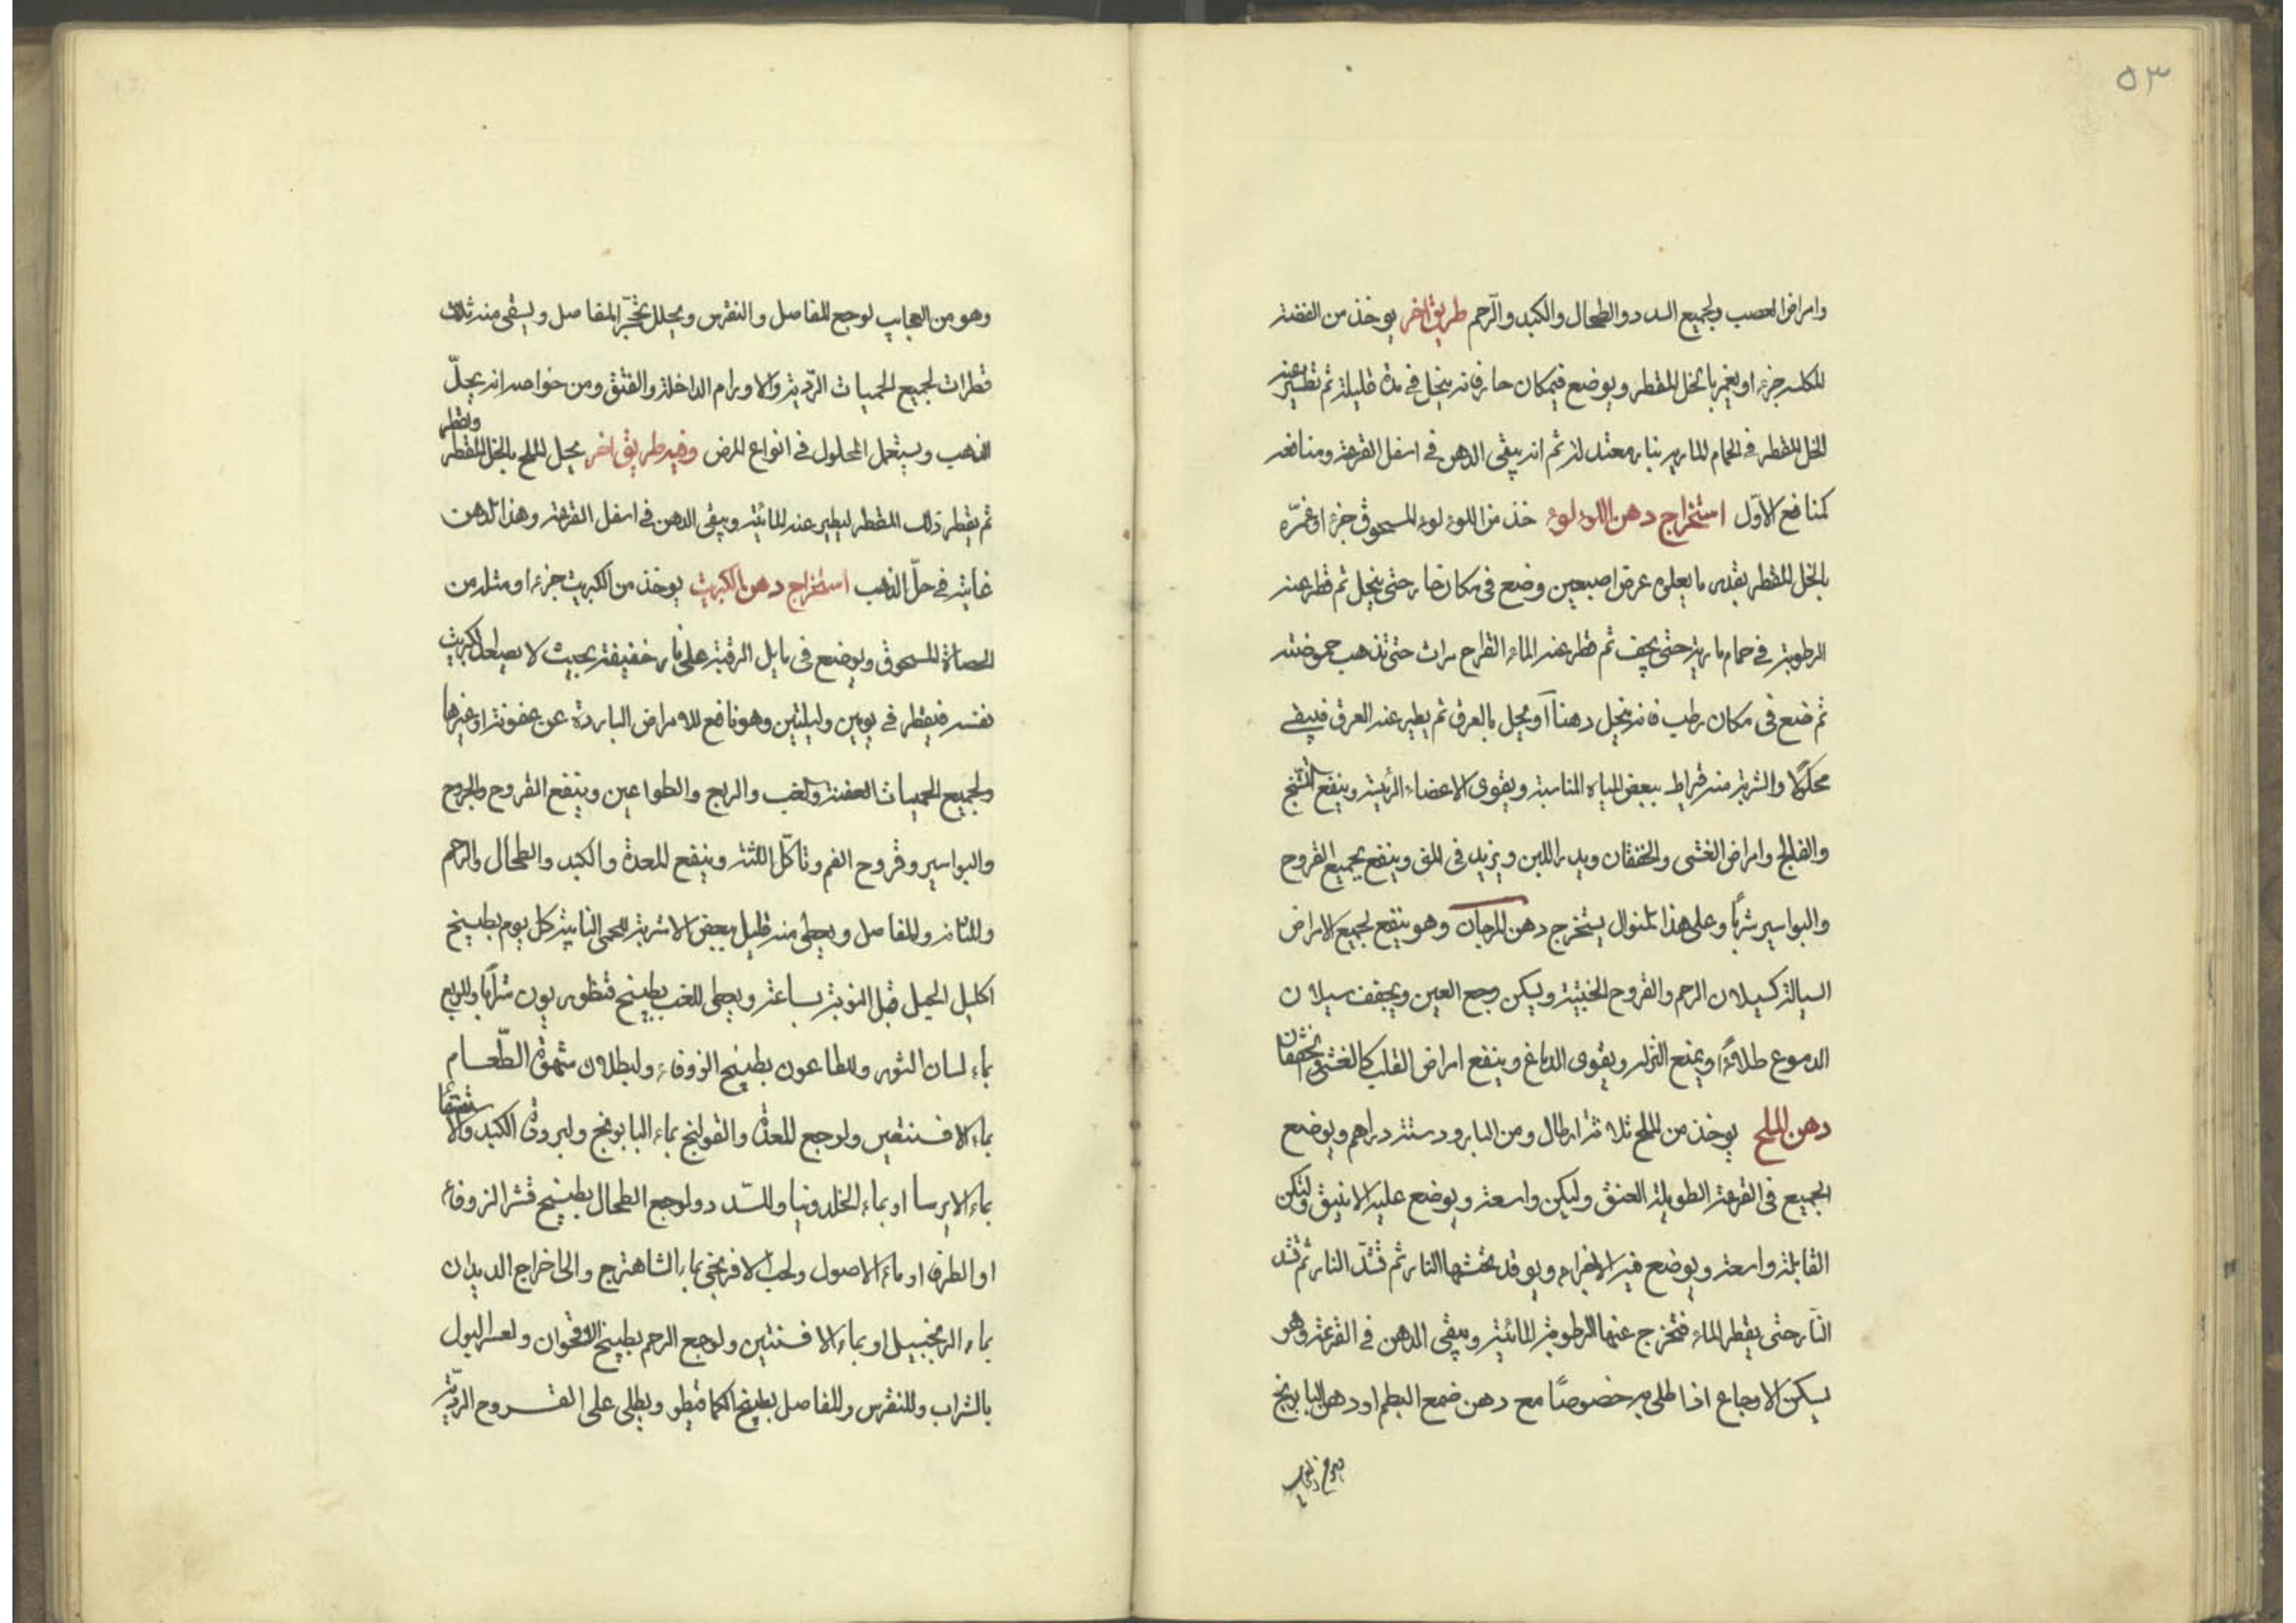 ٥٣
وامراض العصب ولجميع السدد والطحال والكبد والرّحم طريق اخر يوخذ من الفضة
المكلسه جزءاو يغمر بالخل المقطر ويوضع فيمكان حار فانه ينحل في مدة قليلة ثم تطير عنه
الخل المقطر في الحمام المارية بنار معتدلة ثم انه يبقى الدهن في اسفل القرعة ومنافعه
كمنافع الاوّل استخراج دهن اللوءلوء خذ من اللوءلوء المسحوق جزءا وغمّره
بالخل المقطر بقدر ما يعلوه عرض اصبعين وضع في مكان حار حتى ينحل ثم قطر عنه
الرطوبة في حمام مارية حتى يجف ثم قطر عنه الماء القراح مرات حتى تذهب حموضته
ثم ضع في مكان رطب فانه ينحل دهنا او يحل بالعرق ثم يطير عنه العرق فيبقى
محلولا والشربة منه قيراط ببعض المياه المناسبة ويقوى الاعضاء الرئيسة وينفع التشنج
والفالج وامراض الغشى والخفقان ويدر اللبن ويزيد في المنى وينفع لجميع القروح
والبواسير شربا وعلى هذا المنوال يستخرج دهن المرجان وهو ينفع لجميع الامراض
السيالة كسيلان الرحم والقروح الخبيثة ويسكن وجع العين ويجفف سيلان
الدموع طلاءً ويمنع النزله ويقوى الدماغ وينفع امراض القلب كالغشى والخفقان
دهن الملح يوخذ من الملح ثلاثة ارطال ومن البارود ستة دراهم ويوضع
الجميع في القرعة الطويلة العنق وليكن واسعة ويوضع عليه الانبيق ولتكن
القابلة واسعة ويوضع فيه الاجزاء ويوقد تحتها النار ثم تشدّ النار ثم تشد
النار حتى يقطر الماء فتخرج عنها الرطوبة المائية ويبقى الدهن في القرعة وهو
يسكن الاوجاع اذا طلى به خصوصًا مع دهن ضمع البطم او دهن البابونج
وهو من العجايب لوجع المفاصل والنقرس ويحلل تحجّر المفاصل ويسقى منه ثلاث
قطرات لجميع الحميات الردّية والاورام الداخلة والفتق ومن خواصه انه يحلّ
الذهب ويستعمل المحلول في انواع المرض وفيه طريق اخر يحل الملح بالخل المقطر ويقطر
ثم يقطر ذلك المقطر ليطير عنه المائية ويبقى الدهن في اسفل القرعة وهذا الدهن
غاية في حلّ الذهب استخراج دهن الكبريت يوخذ من الكبريت جزءا ومثله من
الحصاة المسحوق ويوضع في مايل الرقبة على نار خفيفة بحيث لا يصعد الكبريت
نفسه فيقطر في يومين وليلتين وهو نافع للامراض الباردة عن عفونة اوغيرها
ولجميع الحميات العفنة والغب والربع والطواعين وينفع القروح والجروح
والبواسير وقروح الفم وتاكل اللثة وينفع للمعدة والكبد والطحال والرحم
وللمثانة وللمفاصل ويعطى منه قليل ببعض الاشربة للحمى النايبة كل يوم بطبيخ
اكليل الجبل قبل النوبة بساعة ويعطى للغب بطبيخ قنطوريون شرابا وللربع
بماء لسان الثور وللطاعون بطبيخ الزوفاء ولبطلان شهوة الطّعام
بماء الافسنتين ولوجع المعدة والقولنج بماء البابونج ولبرودة الكبد والاستسقا
بماء الايرسا او بماء الخلدونيا وللسّدد ولوجع الطحال بطبيخ قشر الزوفاء
او الطرفا او ماء الاصول ولحب الافرنجى بماء الشاهترج والى اخراج الديدان
بماء الزنجبيل او بماء الافسنتين ولوجع الرحم بطبيخ الاقحوان ولعسر البول
بالشراب وللنقرس وللمفاصل بطبيخ الكمافيطو ويطلى على القروح الرديّة